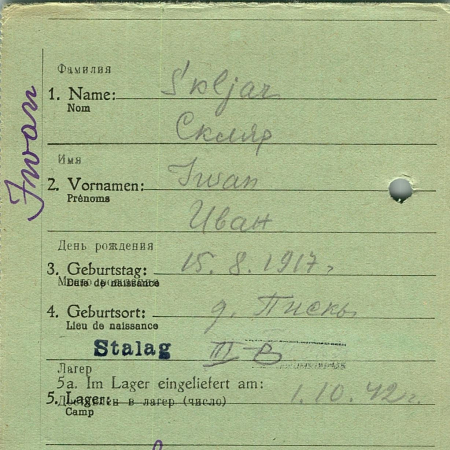 Фамилия
1. Name: S'kljar
Nom
Скляр
Имя
2. Vornamen: Iwan
Prénoms
Иван
Iwan
День рождения
3. Geburtstag: 15. 8. 1917г.
Date de naissance
Место рождения
4. Geburtsort: д. Пискы
Lieu de naissance
Stalag III B
Лагер
5a. Im Lager eingeliefert am: 1. 10. 42 г.
5. Lager:
Доставлен в лагер (число)
Camp